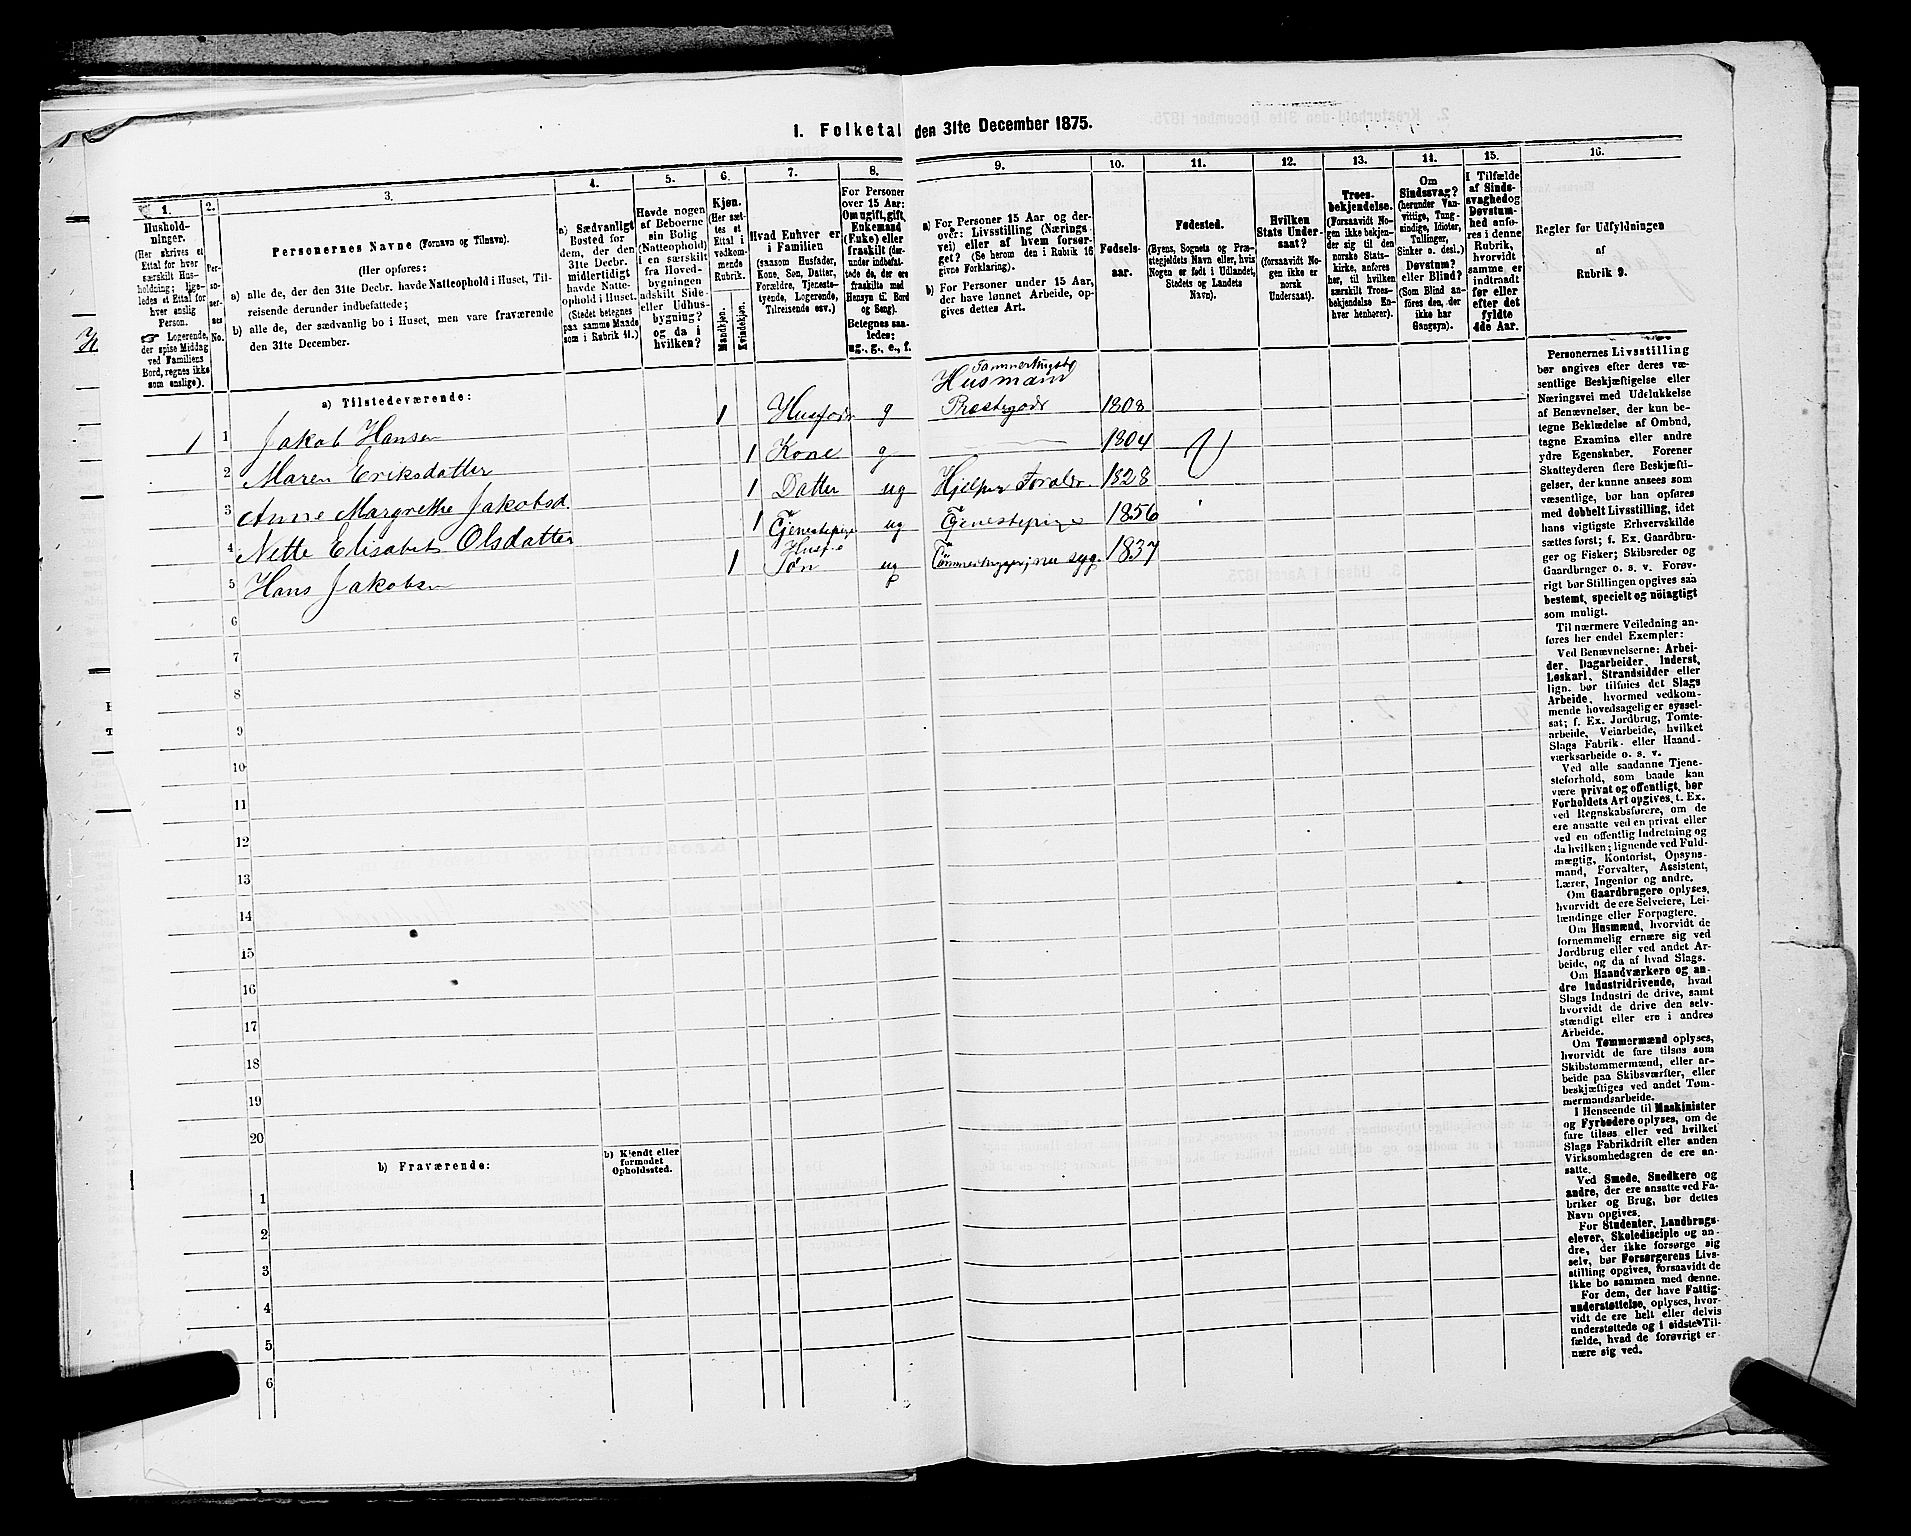 1. Folketal den 31te December 1875.
1.
Hushold-
ninger.
(Her skrives et
Ettal for hver
særskilt Hus-
holdning; lige-
ledes et Ettal for
hver enslig
Person.
☞ Logerende,
der spise Middag
ved Familiens
Bord, regnes ikke
som enslige).
2.
Per-
so-
ner-
nes
No.
3.
Personernes Navne (Fornavn og Tilnavn).
(Her opføres:
a) alle de, der den 31te Decbr. havde Natteophold i Huset, Til-
reisende derunder indbefattede;
b) alle de, der sædvanlig bo i Huset, men vare fraværende
den 31te December.
4.
a) Sædvanligt
Bosted for
dem, der den
31te Decbr.
midlertidigt
havde Natte-
ophold i Huset.
(Stedet betegnes
paa samme Maade
som i Rubrik 11.)
5.
Havde nogen
af Beboerne
sin Bolig
(Natteophold)
i en særskilt
fra Hoved-
bygningen
adskilt Side-
eller Udhus-
bygning?
og da i
hvilken?
6.
Kjøn.
(Her sæt-
tes et
Ettal i
vedkom-
mende
Rubrik.
Mandkjøn.
Kvindekjøn.
7.
Hvad Enhver er
i Familien
(saasom Husfader,
Kone, Søn, Datter,
Forældre, Tjeneste-
tyende, Logerende,
Tilreisende osv.)
8.
For Personer
over 15 Aar:
Om ugift, gift,
Enkemand
(Enke) eller
fraskilt (der-
under indbefat-
tede de, der ere
fraskilte med
Hensyn til Bord
og Seng).
Betegnes saa-
ledes:
ug., g., e., f.
9.
a) For Personer 15 Aar og der-
over: Livsstilling (Nærings-
vei) eller af hvem forsør-
get? (Se herom den i Rubrik 16
givne Forklaring).
b) For Personer under 15 Aar,
der have lønnet Arbeide, op-
gives dettes Art.
10.
Fødsels-
aar.
11.
Fødested.
(Byens, Sognets og Præ-
stegjeldets Navn eller, hvis
Nogen er født i Udlandet,
Stedets og Landets
Navn).
12.
Hvilken
Stats Under-
saat?
(forsaavidt No-
gen ikke er
norsk
Undersaat).
13.
Troes-
bekjendelse.
(Forsaavidt No-
gen ikke bekjen-
der sig til den
norske Stats-
kirke, anføres
her, til hvilken
særskilt Troes-
bekjendelse En-
hver henhører).
14.
Om
Sindssvag?
(herunder Van-
vittige, Tung-
sindige, Idioter,
Tullinger,
Sinker o. desl.)
Døvstum?
eller Blind?
(Som Blind an-
føres den, der
ikke har
Gangsyn).
15.
I Tilfælde
af Sinds-
svaghed og
Døvstum-
hed anfø-
res i denne
Rubrik,
hvorvidt
samme er
indtraadt
før eller
efter det
fyldte
4de Aar.
16.
Regler for Udfyldningen
af
Rubrik 9.
a) Tilstedeværende:
1 1 Jakob Hansen 1 Husfader g Tømmerhugst Husmand Præstegods 1808
2 Maren Eriksdatter 1 Kone g 1804
3 Anne Margrethe Jakobsd. 1 Datter ug Hjelper Foreldr. 1828
4 Nette Elisabet Olsdatter 1 Tjenestepige ug Tjenestepige 1856
5 Hans Jakobsen 1 Søn ug Tømmerhugger, nu syg. 1837
6
7
8
9
10
11
12
13
14
15
16
17
18
19
20
b) Fraværende:
b) Kjendt eller
formodet
Opholdssted.
1
2
3
4
5
6
Personernes Livsstilling
bør angives efter deres væ-
sentlige Beskjæftigelse eller
Næringsvei med Udelukkelse
af Benævnelser, der kun be-
tegne Beklædelse af Ombud,
tagne Examina eller andre
ydre Egenskaber. Forener
Skatteyderen flere Beskjæfti-
gelser, der kunne ansees som
væsentlige, bør han opføres
med dobbelt Livsstilling, idet
hans vigtigste Erhvervskilde
sættes først; f. Ex. Gaardbru-
ger og Fisker; Skibsreder og
Gaardbruger o. s. v. Forøv-
rigt bør Stillingen opgives saa
bestemt, specielt og nöiagtigt
som muligt.
Til nærmere Veiledning an-
føres her endel Exempler:
Ved Benævnelserne: Arbei-
der, Dagarbeider, Inderst,
Løskarl, Strandsidder eller
lign. bør tilføies det Slags
Arbeide, hvormed vedkom-
mende hovedsagelig er syssel-
sat; f. Ex. Jordbrug, Tomte-
arbeide, Veiarbeide, hvilket
Slags Fabrik- eller Haand-
værksarbeide o. s. v.
Ved alle saadanne Tjene-
steforhold, som baade kan
være privat og offentligt, bør
Forholdets Art opgives, t. Ex.
ved Regnskabsførere, om de
ere ansatte ved en privat eller
ved en offentlig Indretning og
da hvilken; lignende ved Fuld-
mægtig, Kontorist, Opsyns-
mand, Forvalter, Assistent,
Lærer, Ingeniør og andre.
Om Gaardbrugere oplyses,
hvorvidt de ere Selveiere, Lei-
lændinge eller Forpagtere.
Om Husmænd, hvorvidt de
fornemmelig ernære sig ved
Jordbrug eller ved andet Ar-
beide, og da af hvad Slags.
Om Haandværkere og an-
dre Industridrivende, hvad
Slags Industri de drive, samt
hvorvidt de drive den selv-
stændigt eller ere i andres
Arbeide.
Om Tømmermænd oplyses,
hvorvidt de fare tilsøs som
Skibstømmermænd, eller ar-
beide paa Skibsværfter, eller
beskjæftiges ved andet Tøm-
mermandsarbeide.
I Henseende til Maskinister
og Fyrbødere oplyses, om de
fare tilsøs eller ved hvilket
Slags Fabrikdrift eller anden
Virksomhedsgren de ere an-
satte.
Ved Smede, Snedkere og
andre, der ere ansatte ved Fa-
briker og Brug, bør dettes
Navn opgives.
For Studenter, Landbrugs-
elever, Skoledisciple og an-
dre, der ikke forsørge sig
selv, bør Forsørgerens Livs-
stilling opgives, forsaavidt de
ikke bo sammen med denne.
For dem, der have Fattig-
understøttelse, oplyses, hvor-
vidt de ere helt eller delvis
understøttede og i sidste Til-
fælde, hvad de forøvrigt er-
nære sig ved.